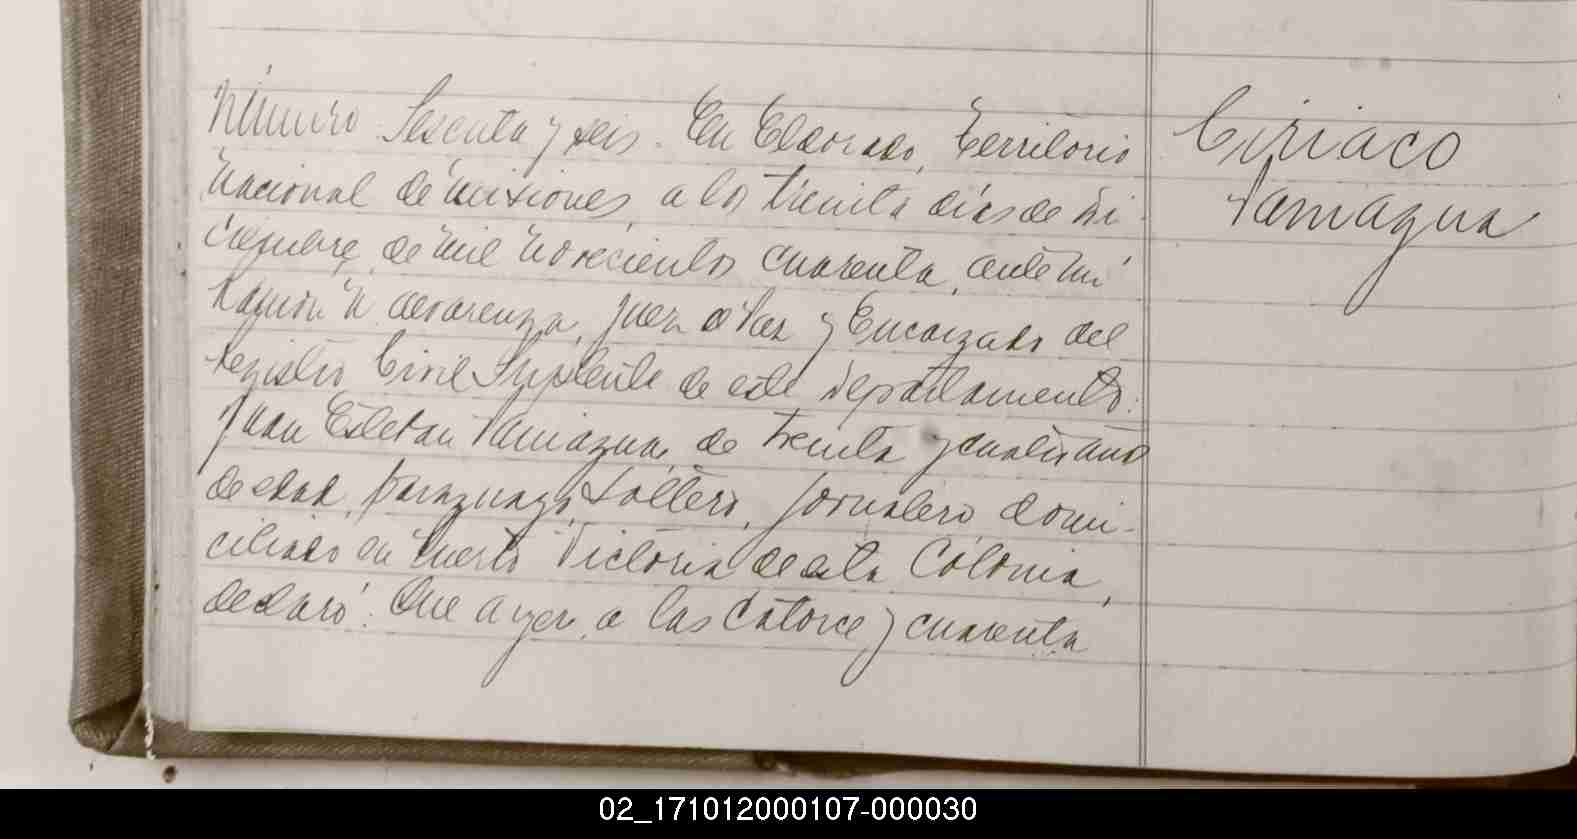 Número Sesenta y seis. En Eldorado, Territorio
Nacional de Misiones, a los treinta días de Di-
ciembre de mil novecientos cuarenta, ante mí
Ramón N. Juez de Paz y Encargado del
Registro Civil Suplente de este Departamento:
Juan Esteban Samagua, de treinta y cuatro años
de edad, paraguayo, soltero, jornalero domi-
ciliado en Puerto Victoria de esta Colonia,
declaró: Que ayer, a las catorce y cuarenta
Ciriaco
Samagua
02_171012000107-000030